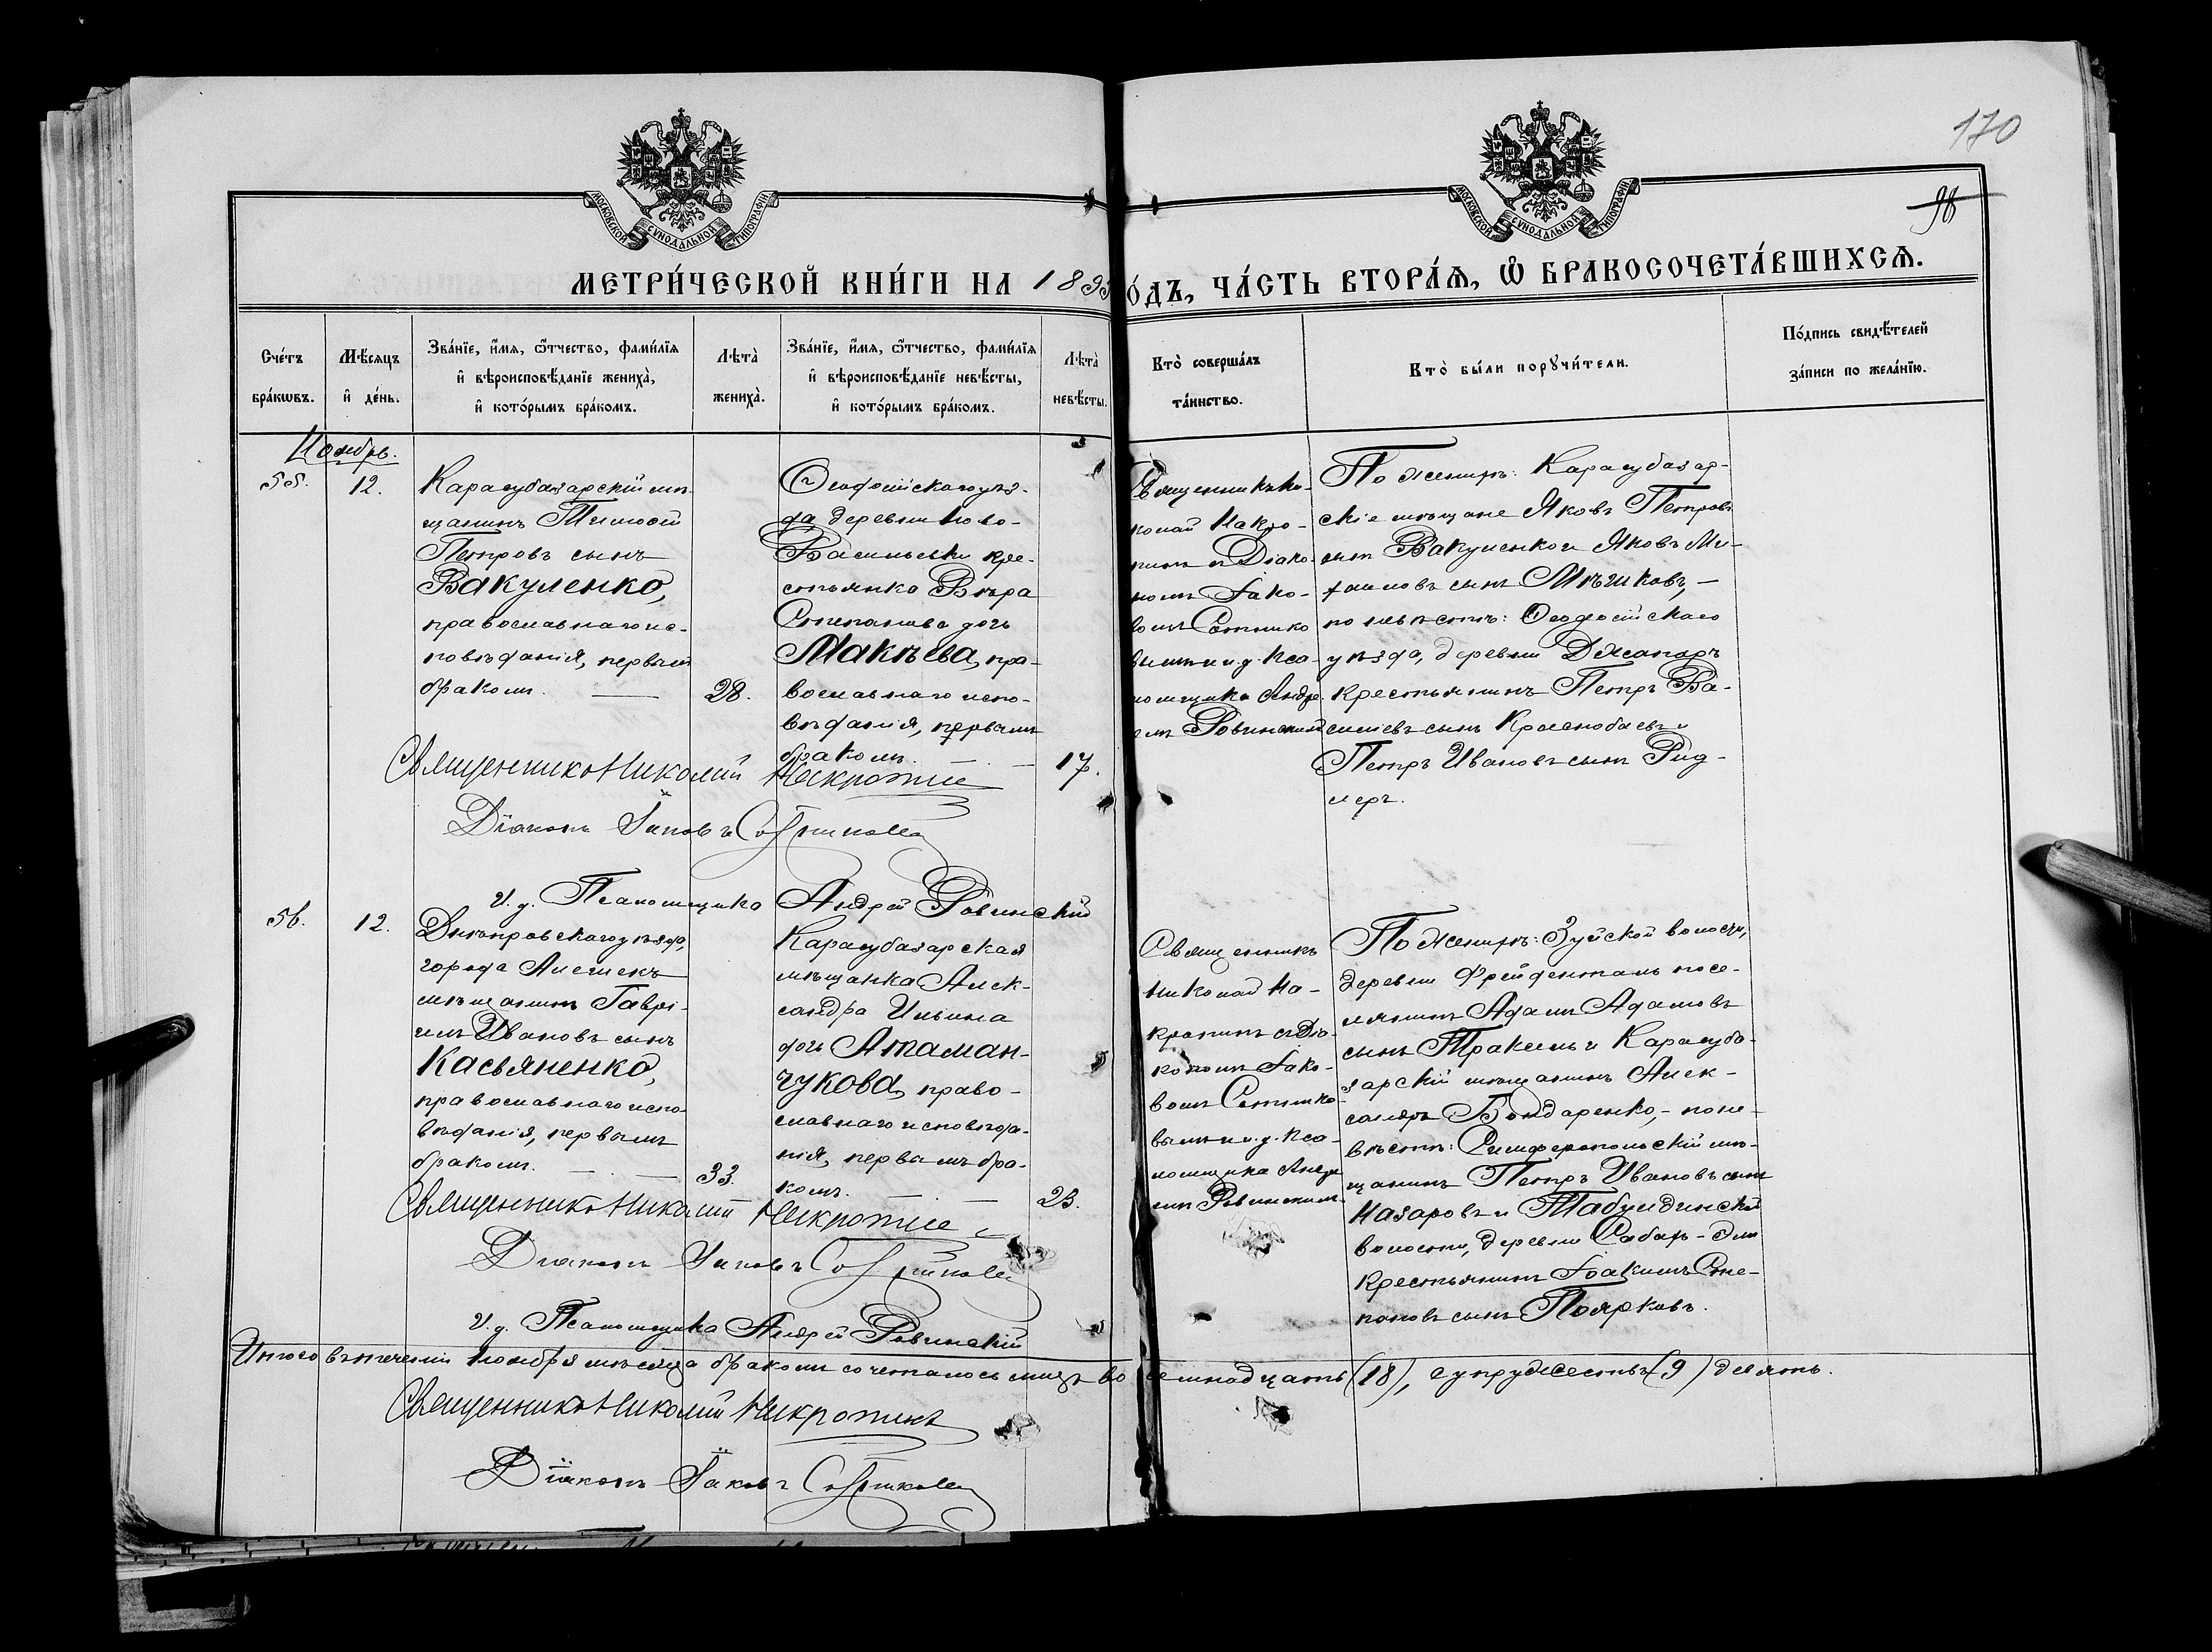 170
98
МОСКОВСКОЙ СѴНОДАЛЬНОЙ ТИПОГРАФІИ
МОСКОВСКОЙ СѴНОДАЛЬНОЙ ТИПОГРАФІИ
МЕТРИ́ЧЕСКОЙ КНИ́ГИ НА 1893
О́ДЪ, ЧА́СТЬ ВТОРА́Я, Ѡ҆ БРАКОСОЧЕТА́ВШИХСЯ.
Сче́тъ
бра́кѡвъ.
Мѣ́сяцъ
и҆ де́нь.
Зва́нїе, и҆́мя, ѻ҆́тчество, фами́лїя
и҆ вѣроисповѣ́данїе жениха̀,
и҆ кото́рымъ бра́комъ.
Лѣта̀
жениха̀.
Зва́нїе, и҆́мя, ѻ҆́тчество, фами́лїя
и҆ вѣроисповѣ́данїе невѣ́сты,
и҆ кото́рымъ бра́комъ.
Лѣта̀
невѣ́сты.
Кто̀ соверша́лъ
та́инство.
Кто̀ бы́ли порꙋчи́тели.
По́дпись свидѣ́телей
за́писи по жела́нїю.
Ноябрь.
55.
12.
Карасубазарскій мѣ-
щанинъ Тимофей
Петровъ сынъ
Вакуленко,
православнаго ис-
повѣданія, первымъ
бракомъ.
28.
Ѳеодосійскаго уѣз-
да деревни Ново-
Васильевки кре-
стьянка Вѣра
Степанова дочь
Макѣева, пра-
вославнаго испо-
вѣданія, первымъ
бракомъ.
17.
Священникъ Ни-
колай Накро-
пинъ съ Діако-
номъ Іако-
вомъ Сотнико
вымъ и и. д. Пса-
ломщика Андре
емъ Ровинскимъ
По женихѣ: Карасубазар-
скіе мѣщане Яковъ Петровъ
сынъ Вакуленко и Яковъ Ми-
хаиловъ сынъ Мѣшковъ, —
по невѣстѣ: Ѳеодосійскаго
уѣзда, деревни Джапаръ
крестьянинъ Петръ Ва-
силіевъ сынъ Краснобаевъ и
Петръ Ивановъ сынъ Рид-
леръ.
Священникъ Николай
Діаконъ Іаковъ Сотниковъ
И. д. Псаломщика Андрей Ровинскій
56.
12.
Днѣпровскаго уѣзда,
города Алешекъ
мѣщанинъ Гаврі-
илъ Ивановъ сынъ
Касьяненко,
православнаго испо-
вѣданія, первымъ
бракомъ.
33.
Карасубазарская
мѣщанка Алек-
сандра Ильина
дочь Атаман-
чукова, право-
славнаго исповѣда-
нія, первымъ бра-
комъ.
23.
Священникъ
Николай На-
кропинъ съ Діа-
кономъ Іако-
вомъ Сотнико-
вымъ и и. д. Пса-
ломщика Андре
емъ Ровинскимъ
По женихѣ: Зуйской волости,
деревни Фрейденталь посе-
лянинъ Адамъ Адамовъ
сынъ Траксель и Карасуба-
зарскій мѣщанинъ Алек-
сандръ Бондаренко, – по не-
вѣстѣ: Симферопольскій мѣ-
щанинъ Петръ Ивановъ сынъ
Назаровъ и Табулдинской
волости, деревни Сабанъ-Эли
крестьянинъ Іоакимъ Сте-
пановъ сынъ Поярковъ.
Священникъ Николай
Діаконъ Іаковъ Сотниковъ
И. д. Псаломщика Андрей Ровинскій
Итого въ теченіи Ноября мѣсяца бракомъ сочеталось лицъ восемнадцать (18), супружествъ (9) девять.
Священникъ Николай
Діаконъ Іаковъ Сотниковъ